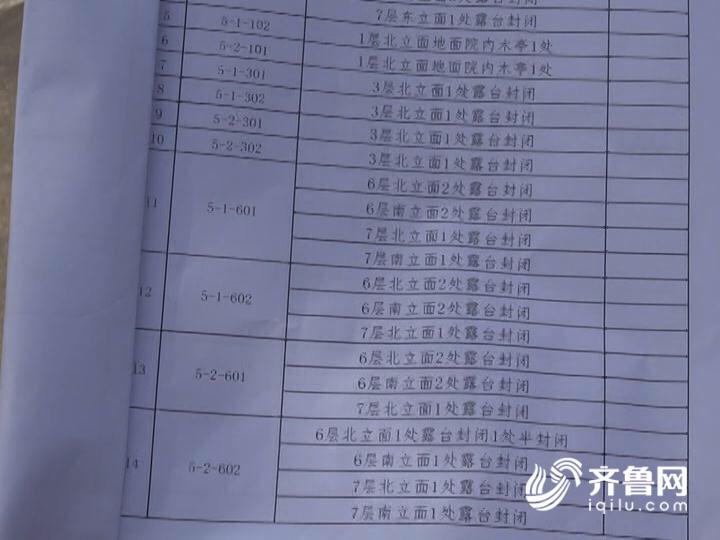 5 5-1-102 7层东立面1处露台封闭
6 5-2-101 1层北立面地面院内木亭1处
7 5-1-301 1层北立面地面院内木亭1处
8 5-1-302 3层北立面1处露台封闭
9 5-2-301 3层北立面1处露台封闭
10 5-2-302 3层北立面1处露台封闭
3层北立面1处露台封闭
6层北立面2处露台封闭
11 5-1-601 6层南立面2处露台封闭
7层北立面1处露台封闭
7层南立面1处露台封闭
6层北立面2处露台封闭
12 5-1-602 6层南立面2处露台封闭
7层北立面1处露台封闭
6层北立面2处露台封闭
13 5-2-601 6层南立面2处露台封闭
7层北立面1处露台封闭
6层北立面1处露台封闭1处半封闭
14 5-2-602 6层南立面1处露台封闭
7层北立面1处露台封闭
7层南立面1处露台封闭
齐鲁网
iqilu.com